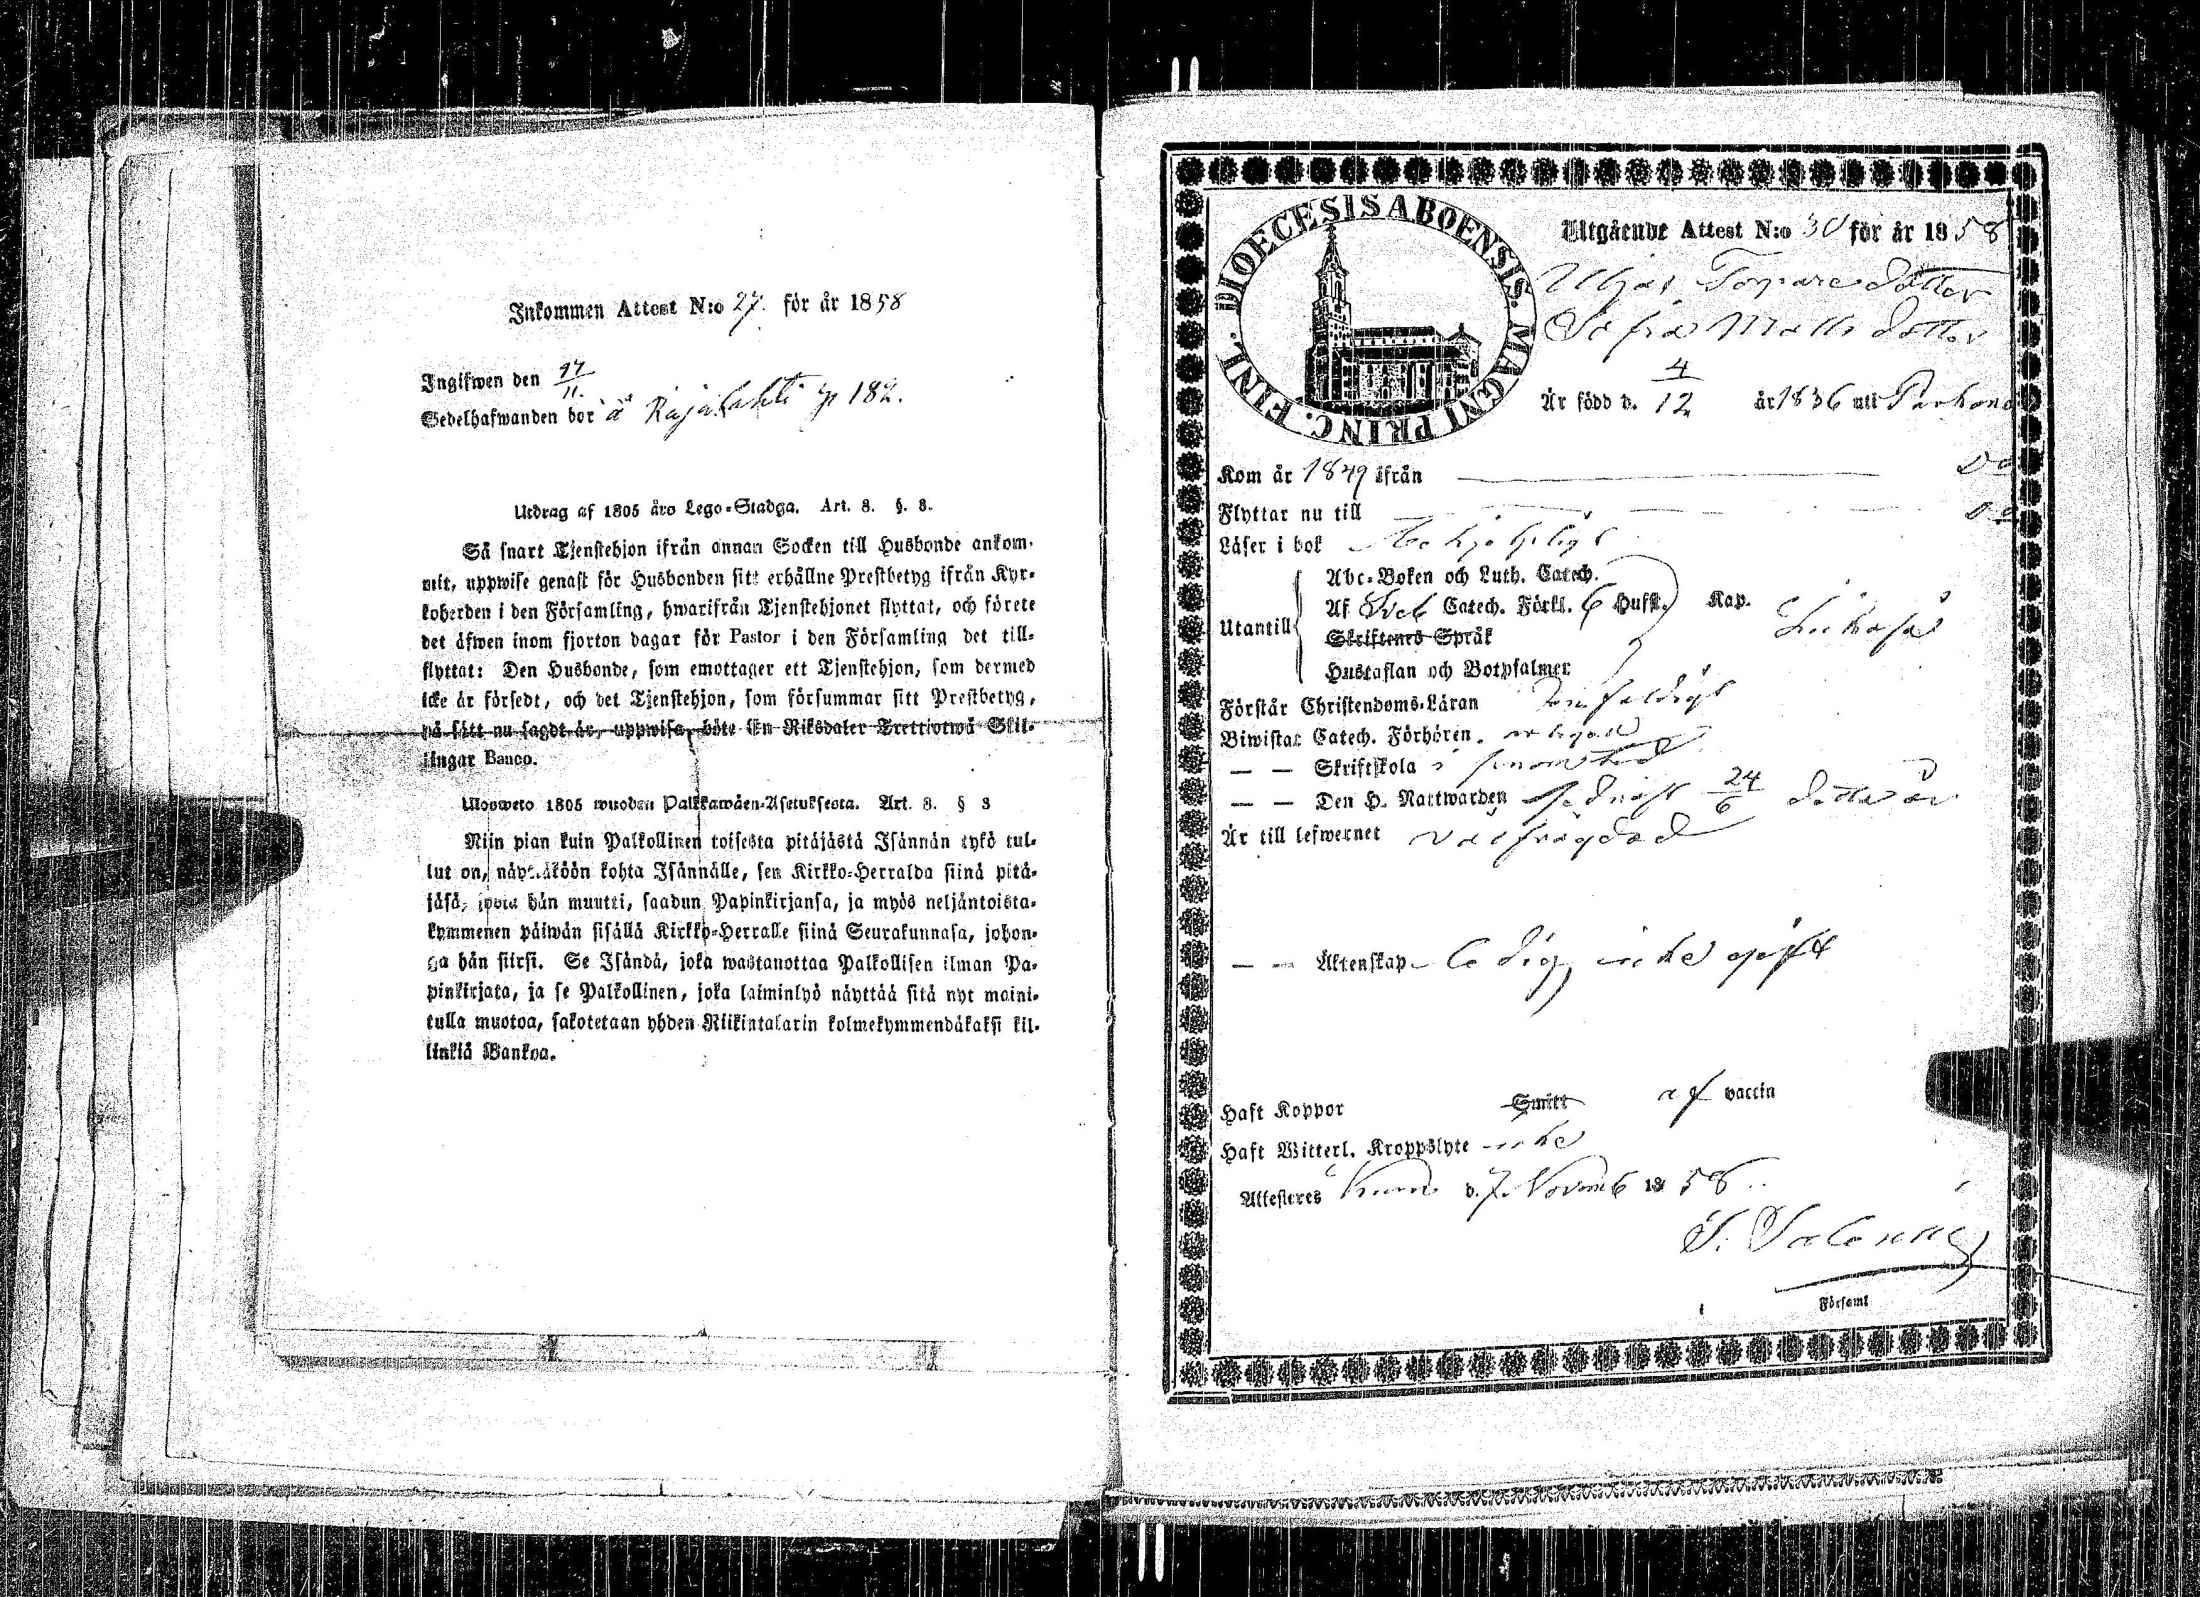 Inkommen Attest N:o 27. för år 1858
Ingifwen den 17/11.
Sedelhafwanden bor å Rajalahti p 182.
Utdrag af 1805 års Lego-Stadga. Art. 8. §. 3.
Så snart Tjenstehjon ifrån annan Socken till Husbonde ankom-
mit, uppwise genast för Husbonden sitt erhållne Prestbetyg ifrån Kyr-
koherden i den Församling, hwarifrån Tjenstehjonet flyttat, och förete
det äfwen inom fjorton dagar för Pastor i den Församling det till-
flyttat: Den Husbonde, som emottager ett Tjenstehjon, som dermed
icke är försedt, och det Tjenstehjon, som försummar sitt Prestbetyg,
på sätt nu sagdt är, uppwisa, böte En Riksdaler Trettiotwå Skil-
lingar Banco.
Ulosweto 1805 wuoden Palkkawäen-Asetuksesta. Art. 8. § 3
Niin pian kuin Palkollinen toisesta pitäjästä Isännän tykö tul-
lut on, näyttäköön kohta Isännälle, sen Kirkko-Herralda siinä pitä-
jäsä, josta hän muutti, saadun Papinkirjansa, ja myös neljäntoista-
kymmenen päiwän sisällä Kirkko-Herralle siinä Seurakunnasa, johon-
ga hän siirsi. Se Isändä, joka wastanottaa Palkollisen ilman Pa-
pinkirjata, ja se Palkollinen, joka laiminlyö näyttää sitä nyt maini-
tulla muotoa, sakotetaan yhden Riikintalarin kolmekymmendäkaksi kil-
linkiä Bankoa.
DIOECESIS ABOENSIS. MAGNI PRINC. FINL.
Utgående Attest N:o 30 för år 1858
Torpare dotter
Sofia Matts dotter
Är född d. 4/12 år 1836 uti Parkano
Kom år 1849 ifrån
Flyttar nu till
Läser i bok
Abc-Boken och Luth. Catech.
Af Sveb Catech. Förkl. 6 Hufst. Kap.
Utantill
Skriftenes Språk
Hustaflan och Botpsalmer
Förstår Christendoms-Läran enfaldigt
Biwistat Catech. Förhören.
— — Skriftskola i
— — Den H. Nattwarden sednast 24/6 detta år
Är till lefwernet välfrägdad
— — Äktenskap ledig, icke gift
Haft Koppor Smitt af vaccin
Haft Witterl. Kroppslyte icke
Attesteras d. 7 Novemb 1858
Församl